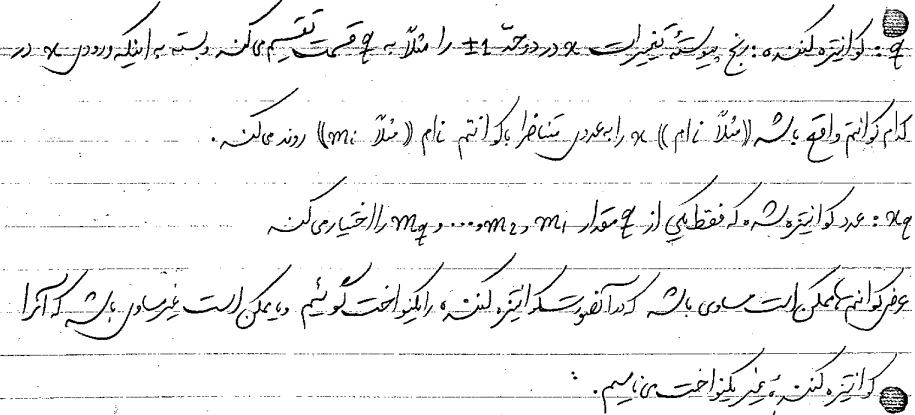 q: کوانتیزه کننده: رنج پیوستهٔ تغییرات x در دو حدّ ±1 را مثلاً به q قسمت تقسیم می‌کند و بسته به اینکه ورودی x در
کدام کوانتم واقع باشد ((مثلاً iام)) x را به عددی متناظر با کوانتم iام ((مثلاً mi)) روند می‌کند.
xq: عدد کوانتیزه شده که فقط یکی از q مقدار m1 و m2 و ... و mq را اختیار می‌کند
عرض کوانتم‌ها ممکن است مساوی باشد که در آنصورت کوانتیزه کننده را یکنواخت گوئیم و یا ممکن است غیر مساوی باشد که آنرا
کوانتیزه کنندهٔ غیر یکنواخت می‌نامیم.